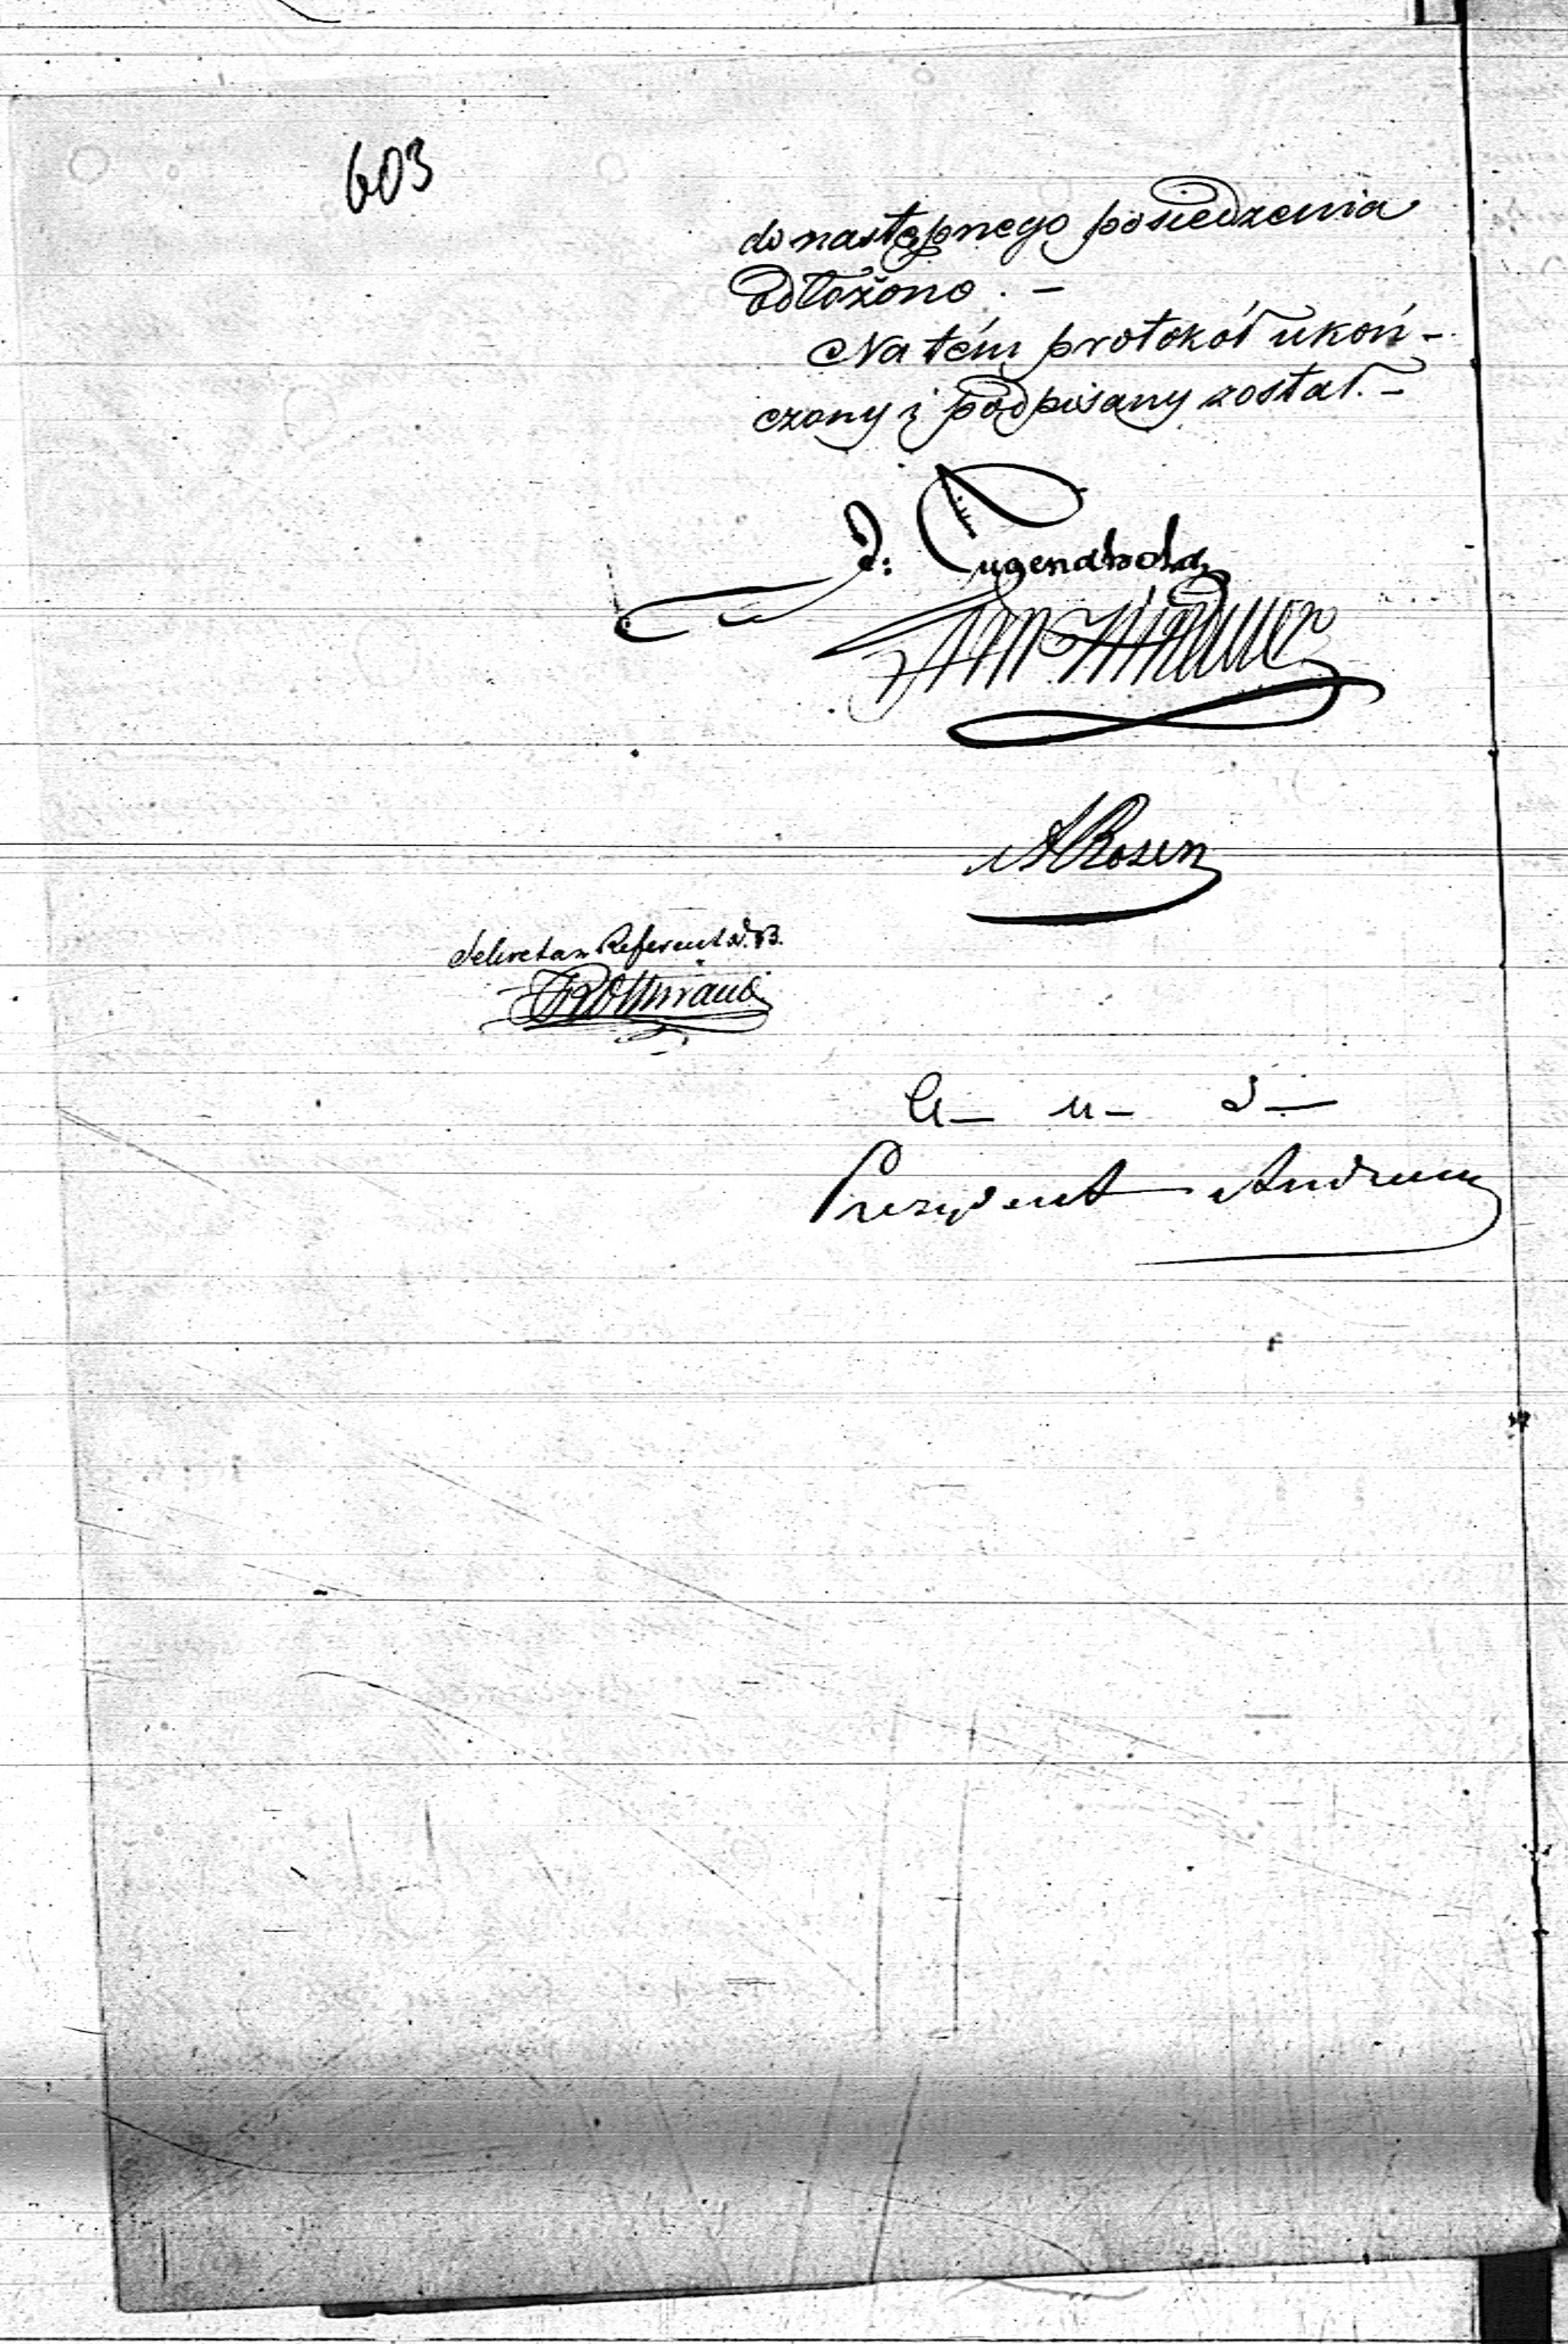 603
do następnego posiedzenia
odłożono. —
Na tém protokół ukoń-
czony i podpisany został. —
J: Tugendhold
A Rosen
Sekretarz Referent
Prezydent